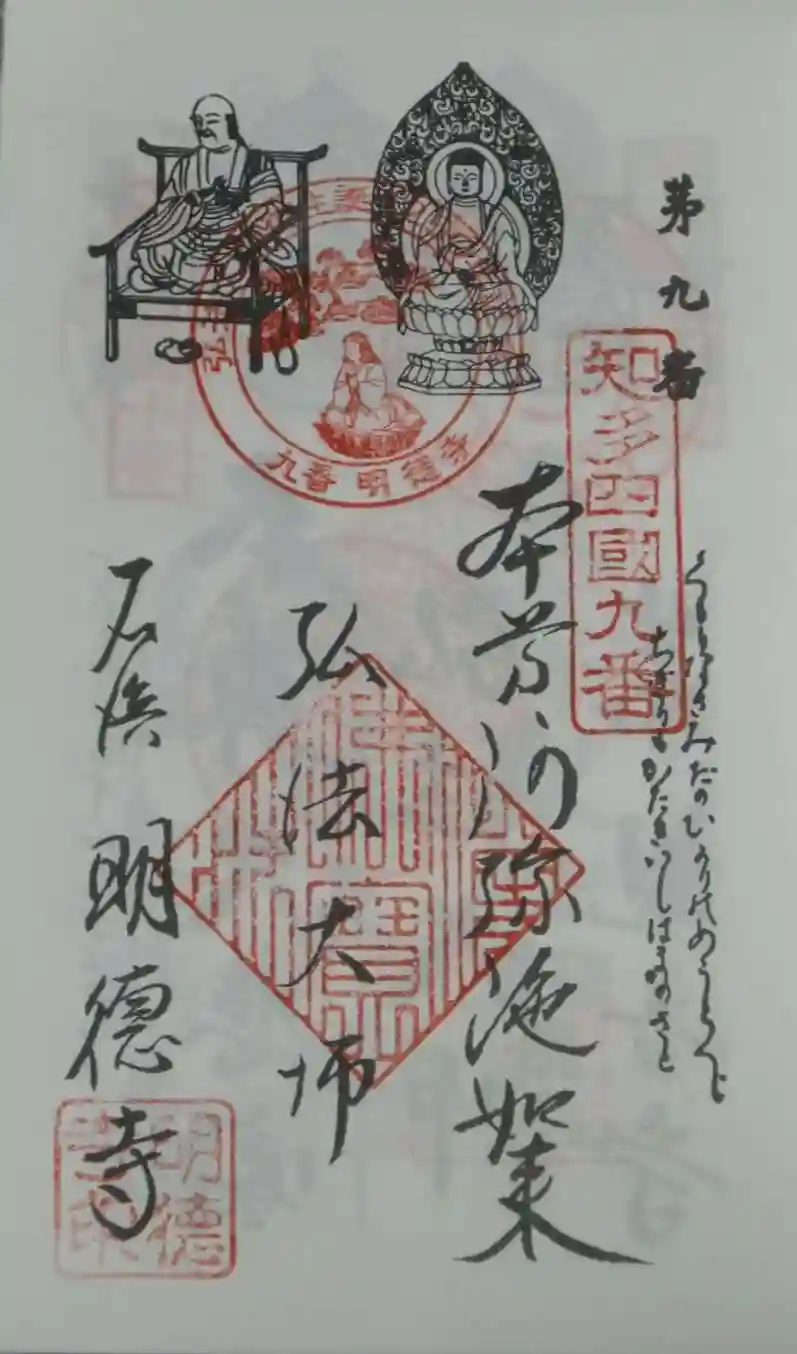 第九番
知多四國九番
くもりなきみだのひかりのめうとくじ
ちぎりもかたきいしはまのさと
本尊阿弥陀如来
九番 明徳寺
弘法大師
寶
石浜 明徳寺
明德
寺印